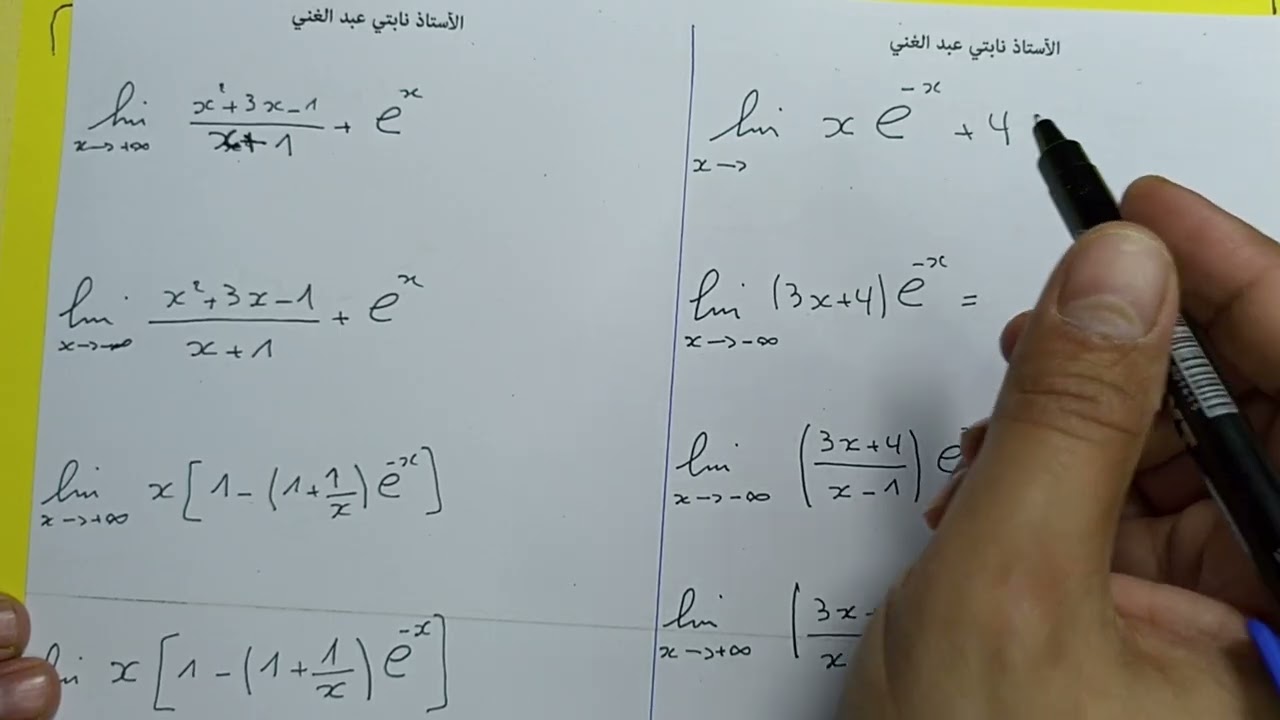 الأستاذ نابتي عبد الغني
lim x→+∞ (x²+3x-1)/(x+1) + e^x
lim x→-∞ (x²+3x-1)/(x+1) + e^x
lim x→+∞ x[1-(1+1/x)e^-x]
x[1-(1+1/x)e^-x]
الأستاذ نابتي عبد الغني
lim x→ x e^-x + 4
lim x→-∞ (3x+4)e^-x =
lim x→-∞ ((3x+4)/(x-1)) e
lim x→+∞ (3x
x